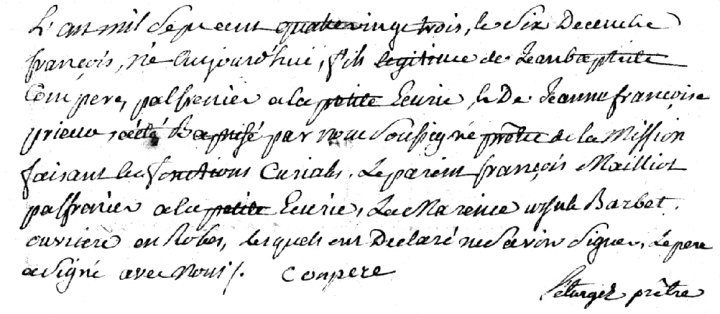 L'an mil sept cent quatre vingt trois, le six Decembre
françois, né aujourd'hui, fils legitime de Jean baptiste
Compere, palfrenier a la petite Ecurie, & De Jeanne françoise
prieur a été Baptisé par nous soussigné prêtre de la Mission
faisant les fonctions Curiales. Le parein françois Mailliot
palfrenier a la petite Ecurie, La Mareine ursule Barbet
ouvriere en Robes, lesquels ont Declaré ne savoir signer, Le pere
a signé avec nous /. Compere
prêtre